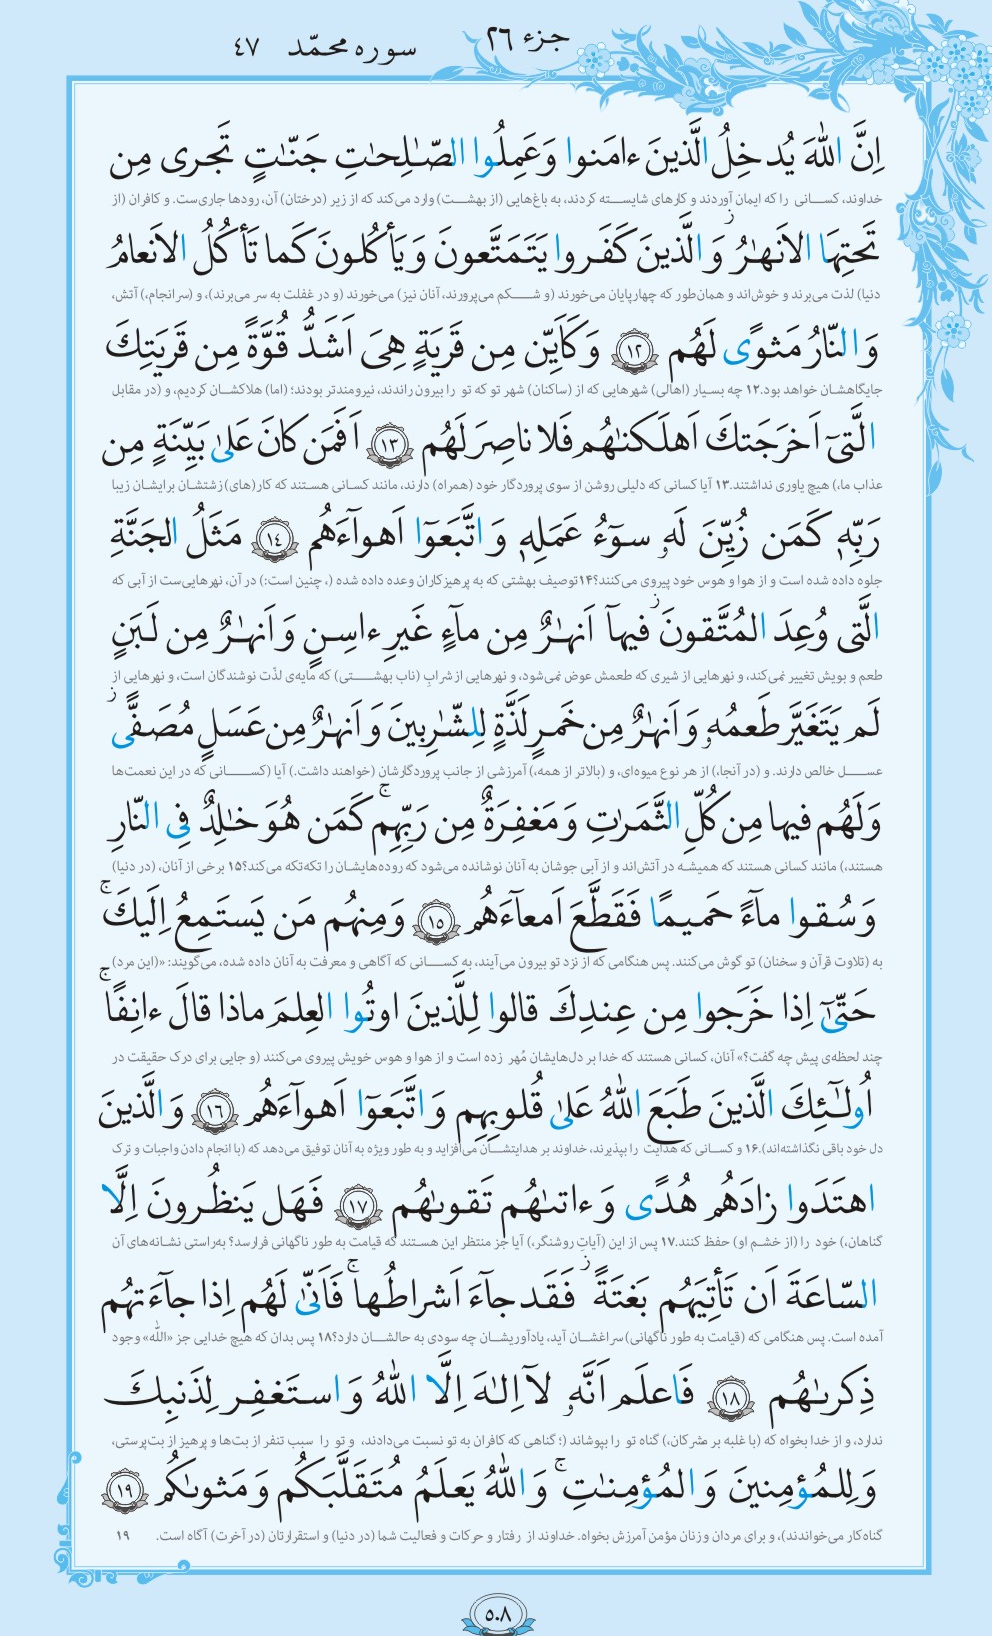 جزء ٢٦
سوره محمّد ٤٧
اِنَّ اللّٰهَ يُدخِلُ الَّذينَ ءامَنوا وَعَمِلُوا الصّٰلِحٰتِ جَنّٰتٍ تَجرى مِن
خداوند، کسانی را که ایمان آوردند و کارهای شایسته کردند، به باغ‌هایی (از بهشت) وارد می‌کند که از زیر (درختان) آن، رودها جاری‌ست. و کافران (از
تَحتِهَا الاَنهٰرُ ز وَ الَّذينَ كَفَروا يَتَمَتَّعونَ وَ يَأكُلونَ كَما تَأكُلُ الاَنعامُ
دنیا) لذت می‌برند و خوش‌اند و همان‌طور که چهارپایان می‌خورند (و شکم می‌پرورند، آنان نیز) می‌خورند (و در غفلت به سر می‌برند)، و (سرانجام،) آتش،
وَ النّارُ مَثوًى لَهُم ١٢ وَ كَاَيِّن مِن قَريَةٍ هِىَ اَشَدُّ قُوَّةً مِن قَريَتِكَ
جایگاهشان خواهد بود.۱۲ چه بسیار (اهالی) شهرهایی که از (ساکنان) شهر تو که تو را بیرون راندند، نیرومندتر بودند؛ (اما) هلاکشان کردیم، و (در مقابل
الَّتىٓ اَخرَجَتكَ اَهلَكنٰهُم فَلا ناصِرَ لَهُم ١٣ اَفَمَن كانَ عَلىٰ بَيِّنَةٍ مِن
عذاب ما،) هیچ یاوری نداشتند.۱۳ آیا کسانی که دلیلی روشن از سوی پروردگار خود (همراه) دارند، مانند کسانی هستند که کار(های) زشتشان برایشان زیبا
رَبِّهٖ كَمَن زُيِّنَ لَهٗ سوٓءُ عَمَلِهٖ وَ اتَّبَعوٓا اَهوآءَهُم ١٤ مَثَلُ الجَنَّةِ
جلوه داده شده است و از هوا و هوس خود پیروی می‌کنند؟۱۴ توصیف بهشتی که به پرهیزکاران وعده داده شده (، چنین است:) در آن، نهرهایی‌ست از آبی که
الَّتى وُعِدَ المُتَّقونَ ز فيهآ اَنهٰرٌ مِن مآءٍ غَيرِ ءاسِنٍ وَ اَنهٰرٌ مِن لَبَنٍ
طعم و بویش تغییر نمی‌کند، و نهرهایی از شیری که طعمش عوض نمی‌شود، و نهرهایی از شرابِ (ناب بهشتی) که مایه‌ی لذّت نوشندگان است، و نهرهایی از
لَم يَتَغَيَّر طَعمُهٗ وَ اَنهٰرٌ مِن خَمرٍ لَذَّةٍ لِلشّٰرِبينَ وَ اَنهٰرٌ مِن عَسَلٍ مُصَفًّى ز
عسل خالص دارند. و (در آنجا،) از هر نوع میوه‌ای، و (بالاتر از همه،) آمرزشی از جانب پروردگارشان (خواهند داشت.) آیا (کسانی که در این نعمت‌ها
وَلَهُم فيها مِن كُلِّ الثَّمَرٰتِ وَ مَغفِرَةٌ مِن رَبِّهِم ۚ كَمَن هُوَ خٰلِدٌ فِى النّارِ
هستند،) مانند کسانی هستند که همیشه در آتش‌اند و از آبی جوشان به آنان نوشانده می‌شود که روده‌هایشان را تکه‌تکه می‌کند؟۱۵ برخی از آنان، (در دنیا)
وَ سُقوا مآءً حَميمًا فَقَطَّعَ اَمعآءَهُم ١٥ وَ مِنهُم مَن يَستَمِعُ اِلَيكَ ۚ
به (تلاوت قرآن و سخنان) تو گوش می‌کنند. پس هنگامی که از نزد تو بیرون می‌آیند، به کسانی که آگاهی و معرفت به آنان داده شده، می‌گویند: «(این مرد)
حَتّىٰٓ اِذا خَرَجوا مِن عِندِكَ قالوا لِلَّذينَ اوتُوا العِلمَ ماذا قالَ ءانِفًا ۚ
چند لحظه‌ی پیش چه گفت؟» آنان، کسانی هستند که خدا بر دل‌هایشان مُهر زده است و از هوا و هوس خویش پیروی می‌کنند (و جایی برای درک حقیقت در
اُولٰٓئِكَ الَّذينَ طَبَعَ اللّٰهُ عَلىٰ قُلوبِهِم وَ اتَّبَعوٓا اَهوآءَهُم ١٦ وَ الَّذينَ
دل خود باقی نگذاشته‌اند).۱۶ و کسانی که هدایت را بپذیرند، خداوند بر هدایتشان می‌افزاید و به طور ویژه به آنان توفیق می‌دهد که (با انجام دادن واجبات و ترک
اهتَدَوا زادَهُم هُدًى وَ ءاتىٰهُم تَقوىٰهُم ١٧ فَهَل يَنظُرونَ اِلَّا
گناهان،) خود را (از خشم او) حفظ کنند.۱۷ پس از این (آیاتِ روشنگر،) آیا جز منتظر این هستند که قیامت به طور ناگهانی فرارسد؟ به‌راستی نشانه‌های آن
السّاعَةَ اَن تَأتِيَهُم بَغتَةً ز فَقَد جآءَ اَشراطُها ۚ فَاَنّىٰ لَهُم اِذا جآءَتهُم
آمده است. پس هنگامی که (قیامت به طور ناگهانی) سراغشان آید، یادآوریشان چه سودی به حالشان دارد؟۱۸ پس بدان که هیچ خدایی جز «اللّٰه» وجود
ذِكرىٰهُم ١٨ فَاعلَم اَنَّهٗ لآ اِلٰهَ اِلَّا اللّٰهُ وَ استَغفِر لِذَنبِكَ
ندارد، و از خدا بخواه که (با غلبه بر مشرکان،) گناه تو را بپوشاند (؛ گناهی که کافران به تو نسبت می‌دادند، و تو را سبب تنفر از بت‌ها و پرهیز از بت‌پرستی،
وَ لِلمُؤمِنينَ وَ المُؤمِنٰتِ ۚ وَ اللّٰهُ يَعلَمُ مُتَقَلَّبَكُم وَ مَثوىٰكُم ١٩
گناه‌کار می‌خواندند)، و برای مردان و زنان مؤمن آمرزش بخواه. خداوند از رفتار و حرکات و فعالیت شما (در دنیا) و استقرارتان (در آخرت) آگاه است. ۱۹
٥٠٨